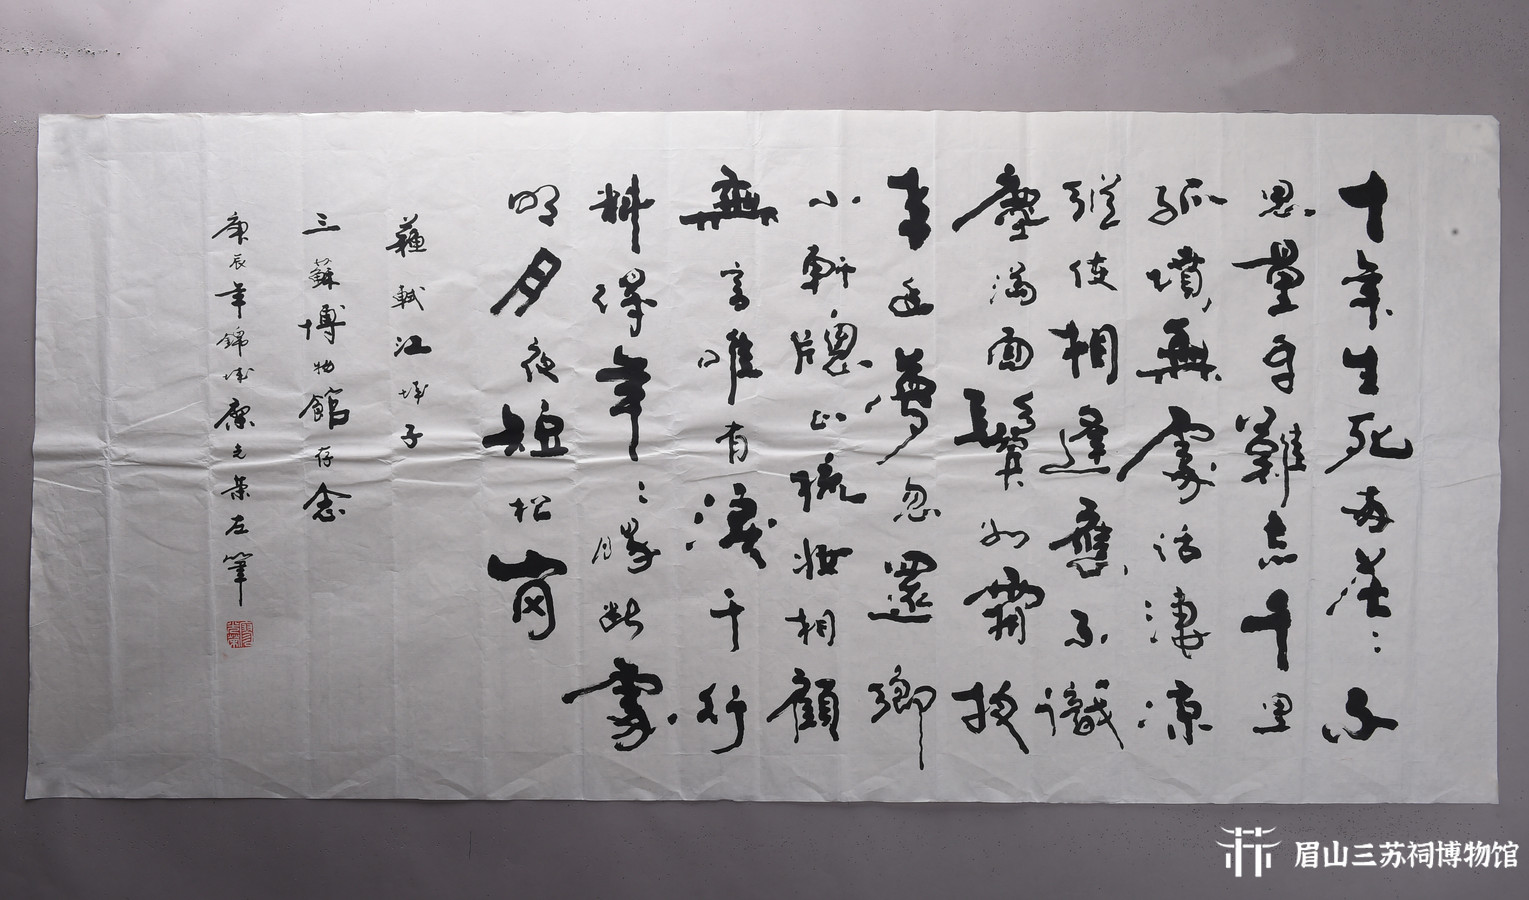 十年生死兩茫〻不
思量自難忘千里
孤墳無處話淒涼
縱使相逢應不識
塵滿面鬢如霜夜
來幽夢忽還鄉
小軒牕正梳妝相顧
無言唯有淚千行
料得年〻腸斷處
明月夜短松崗
蘇軾江城子
三蘇博物館存念
庚辰年錦城左筆
眉山三苏祠博物馆